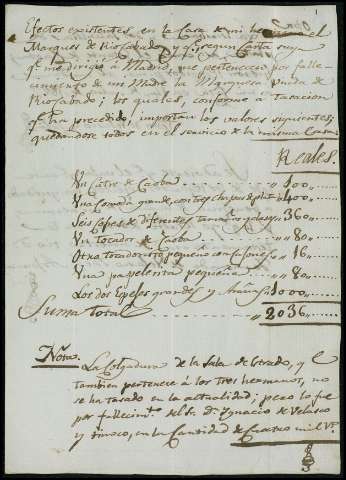 1
Efectos existentes en la Casa de mi hermano el
Marques de Riosabado y qe. segun Carta suya
qe. me dirigió a Madrid, me pertenecen por falle-
cimiento de mi Madre la Marquesa Viuda de
Riosabado; los quales, conforme a tasacion
qe. ha precedido, importan los valores siguientes;
quedandose todos en el servicio de la misma Casa.
Reales.
Un Catre de Caoba 100
Una Comoda grande, con tres chapas de plata 400
Seis Cofres de diferentes tamaños y clases 360
Un tocador de Caoba 80
Otro tocadorcito pequeño con Cajones 16
Una papelerita pequeña 80
Los dos Espejos grandes y Arañas 1000
Suma total 2036
Nota.
La Colgadura de la Sala de Estrado, y
tambien pertenece á los tres hermanos, no
se ha tasado en la actualidad; pero lo fue
por fallecimto. del Sr. Dn. Ignacio de Velasco
y tinoco, en la Cantidad de Cuatro mil Vn.